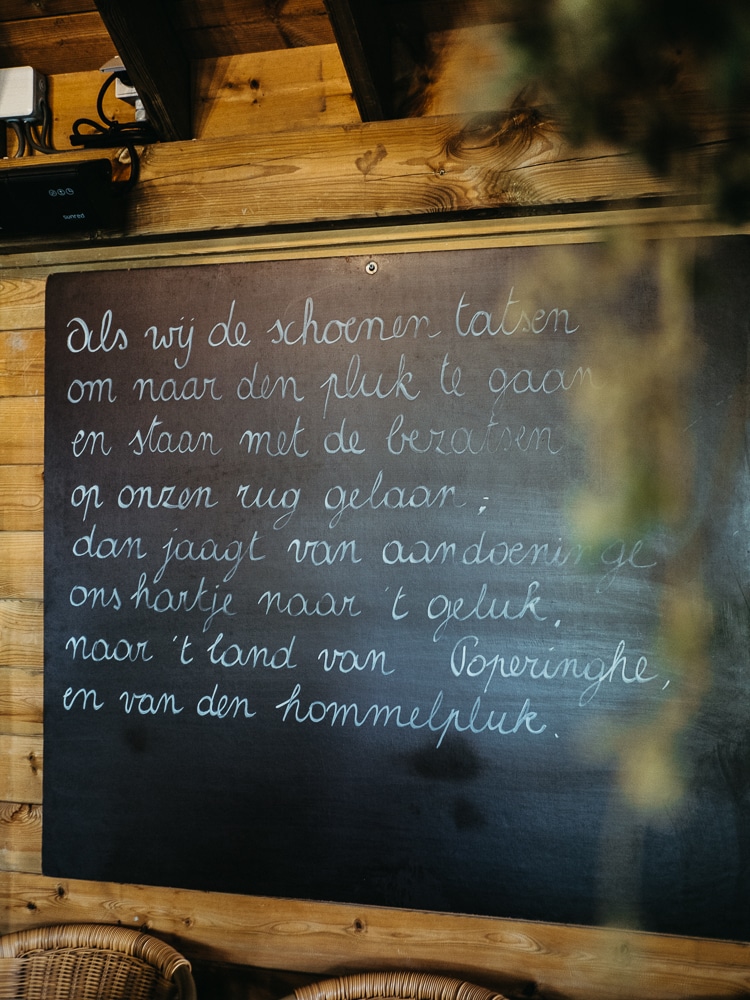 sunred
Als wij de schoenen tatsen
om naar den pluk te gaan
en staan met de bezatsen
op onzen rug gelaan;
dan jaagt van aandoeninge
ons hartje naar 't geluk,
naar 't land van Poperinghe,
en van den hommelpluk.